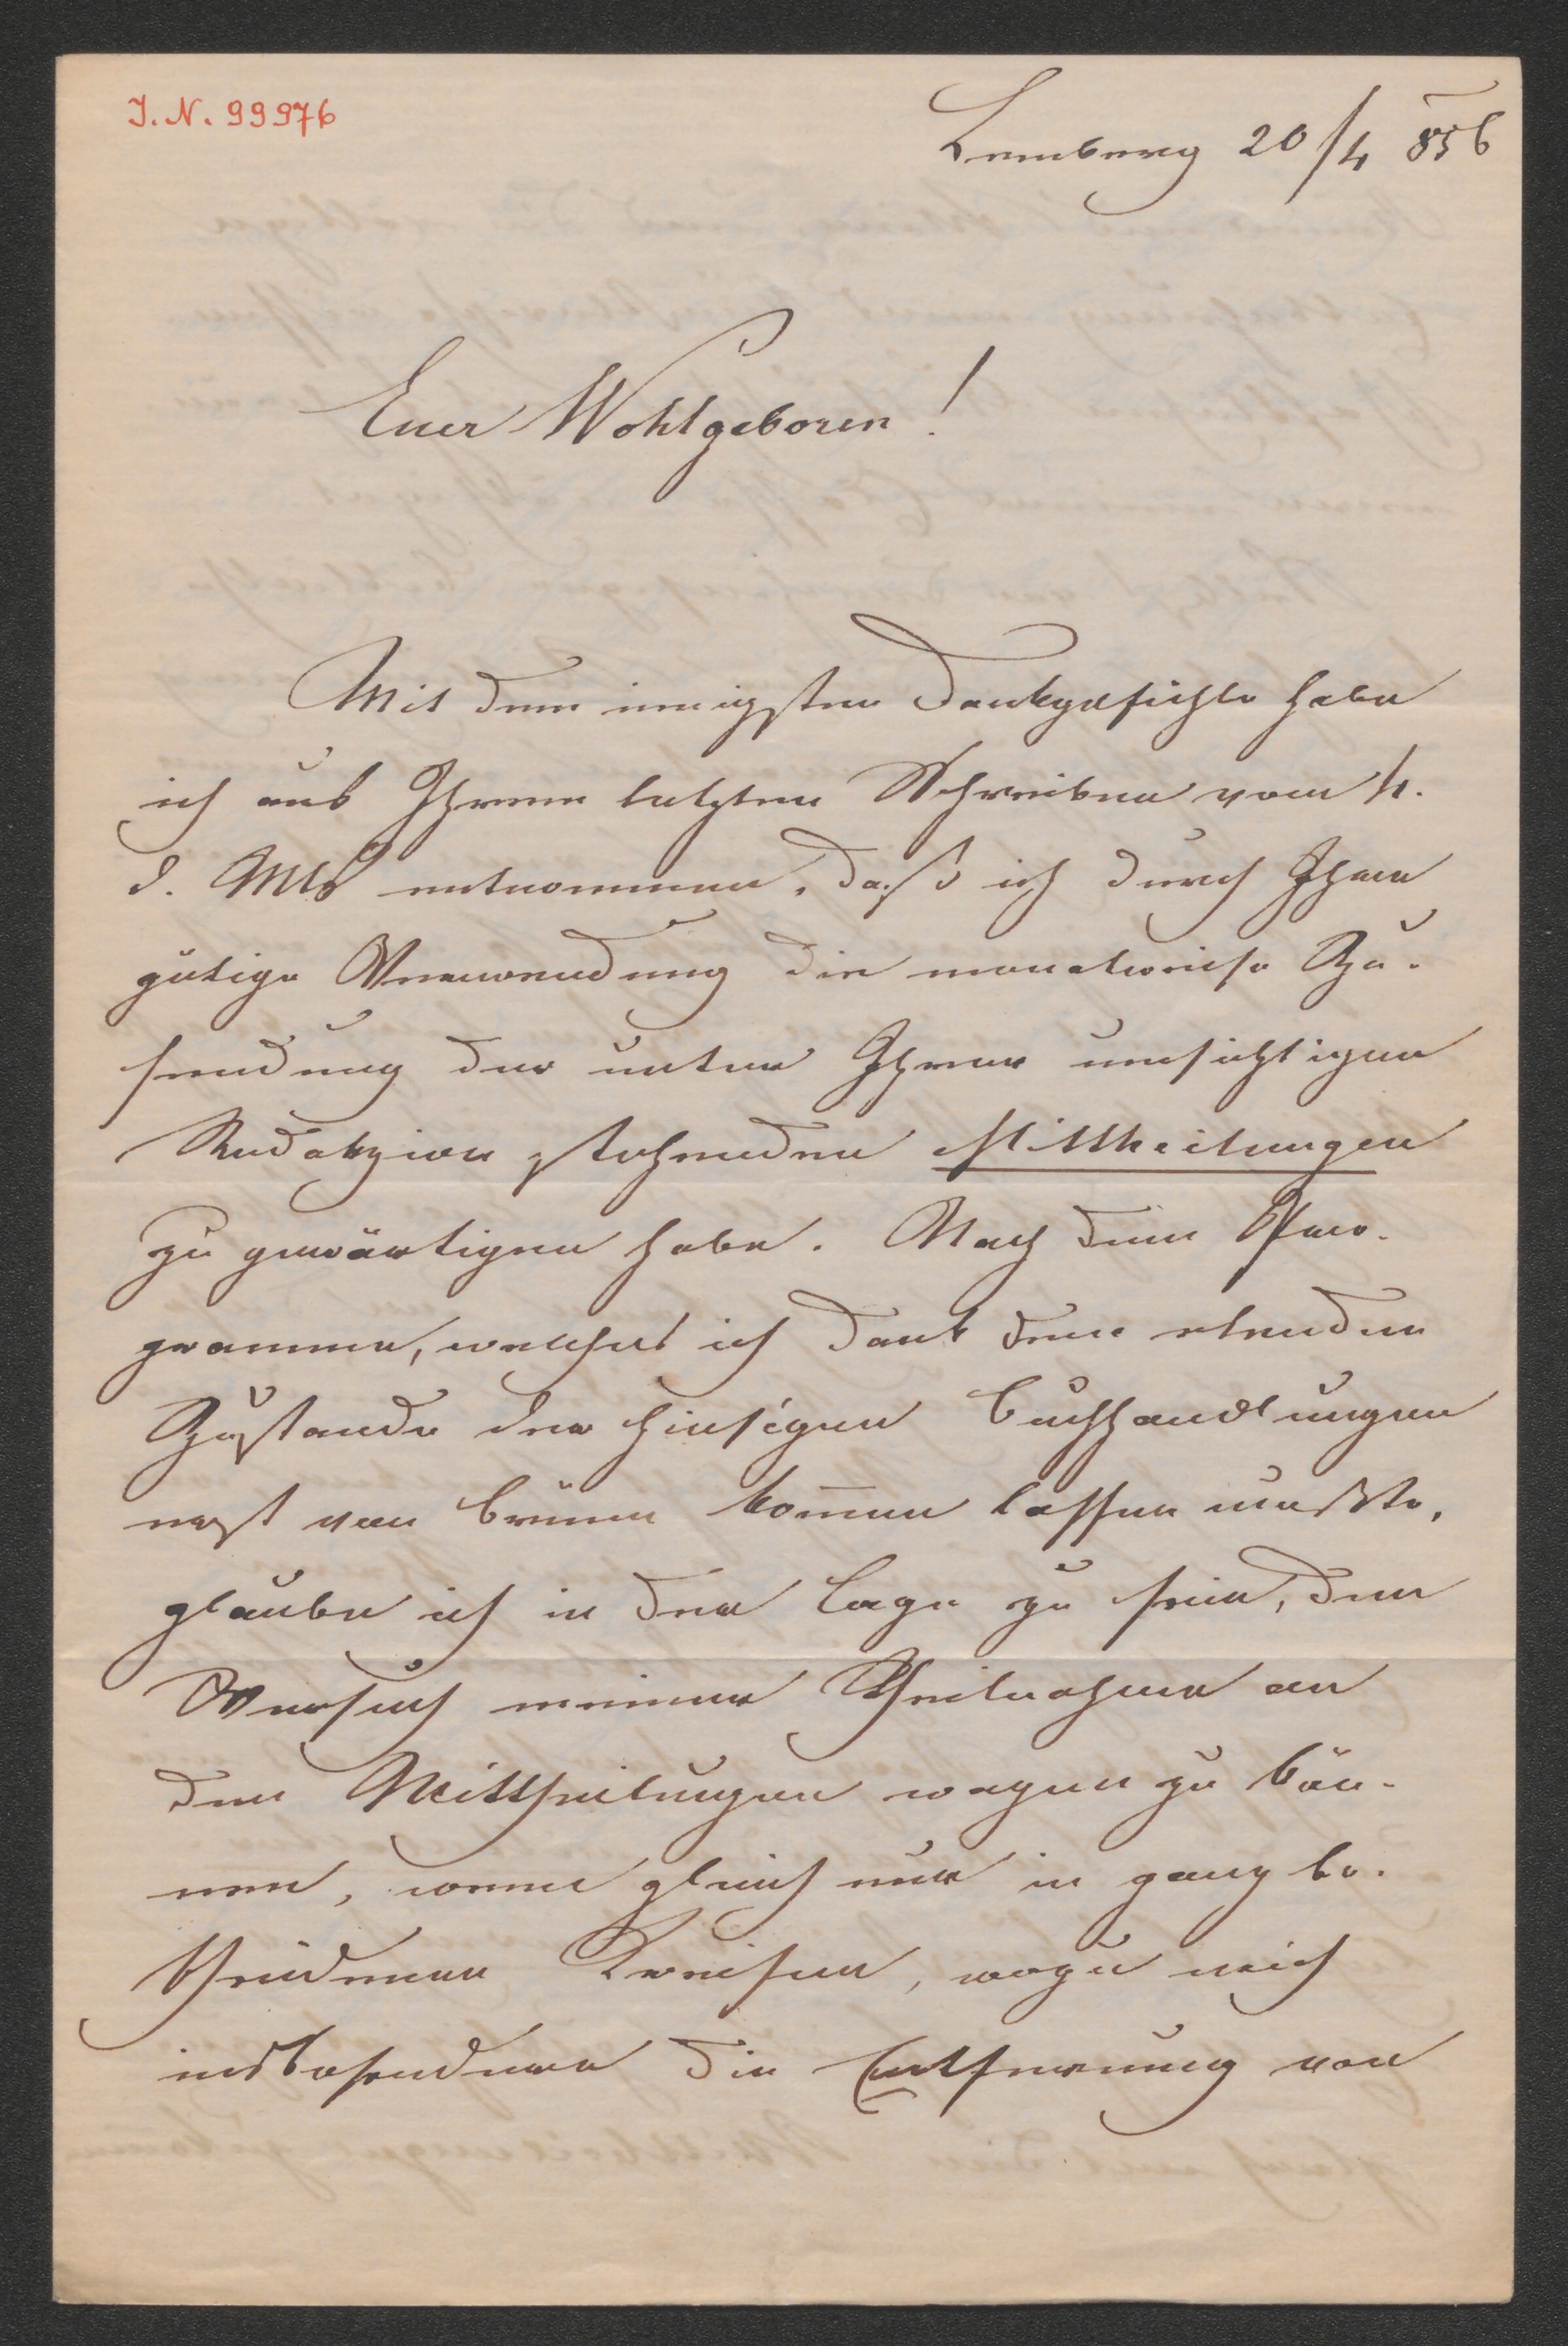 I. N. 99976
Lemberg 20/4 856
Euer Wohlgeboren!
Mit dem innigsten Dankgefühle habe
ich aus Ihrem letzten Schreiben vom 4.
d. Mts entnommen, daß ich durch Ihre
gütige Verwendung die monatweise Zu-
sendung der unter Ihrer umsichtigen
Redakzion stehenden Mittheilungen
zu gewärtigen habe. Nach dem Pro-
gramme, welches ich Dank dem elenden
Zustande der hiesigen Buchhandlungen
erst von Brünn kom̅en lassen mußte,
glaube ich in der Lage zu sein, den
Versuch meiner Theilnahme an
den Mittheilungen wagen zu kön-
nen, wenn gleich nur in ganz be-
scheidenen Kreisen, wozu mich
insbesondere die Entfernung von